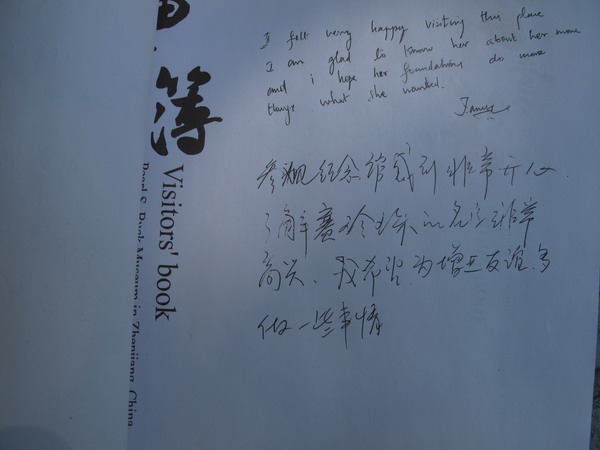 簿
Visitors' book
Pearl S. Buck Museum in Zhenjiang, China
I felt very happy visiting this place
I am glad to know her about her more
and i hope her foundations do more
things what she wanted.
参观纪念馆感到非常开心.
了解赛珍珠的
高兴、我希望为增互友谊多
做一些事情